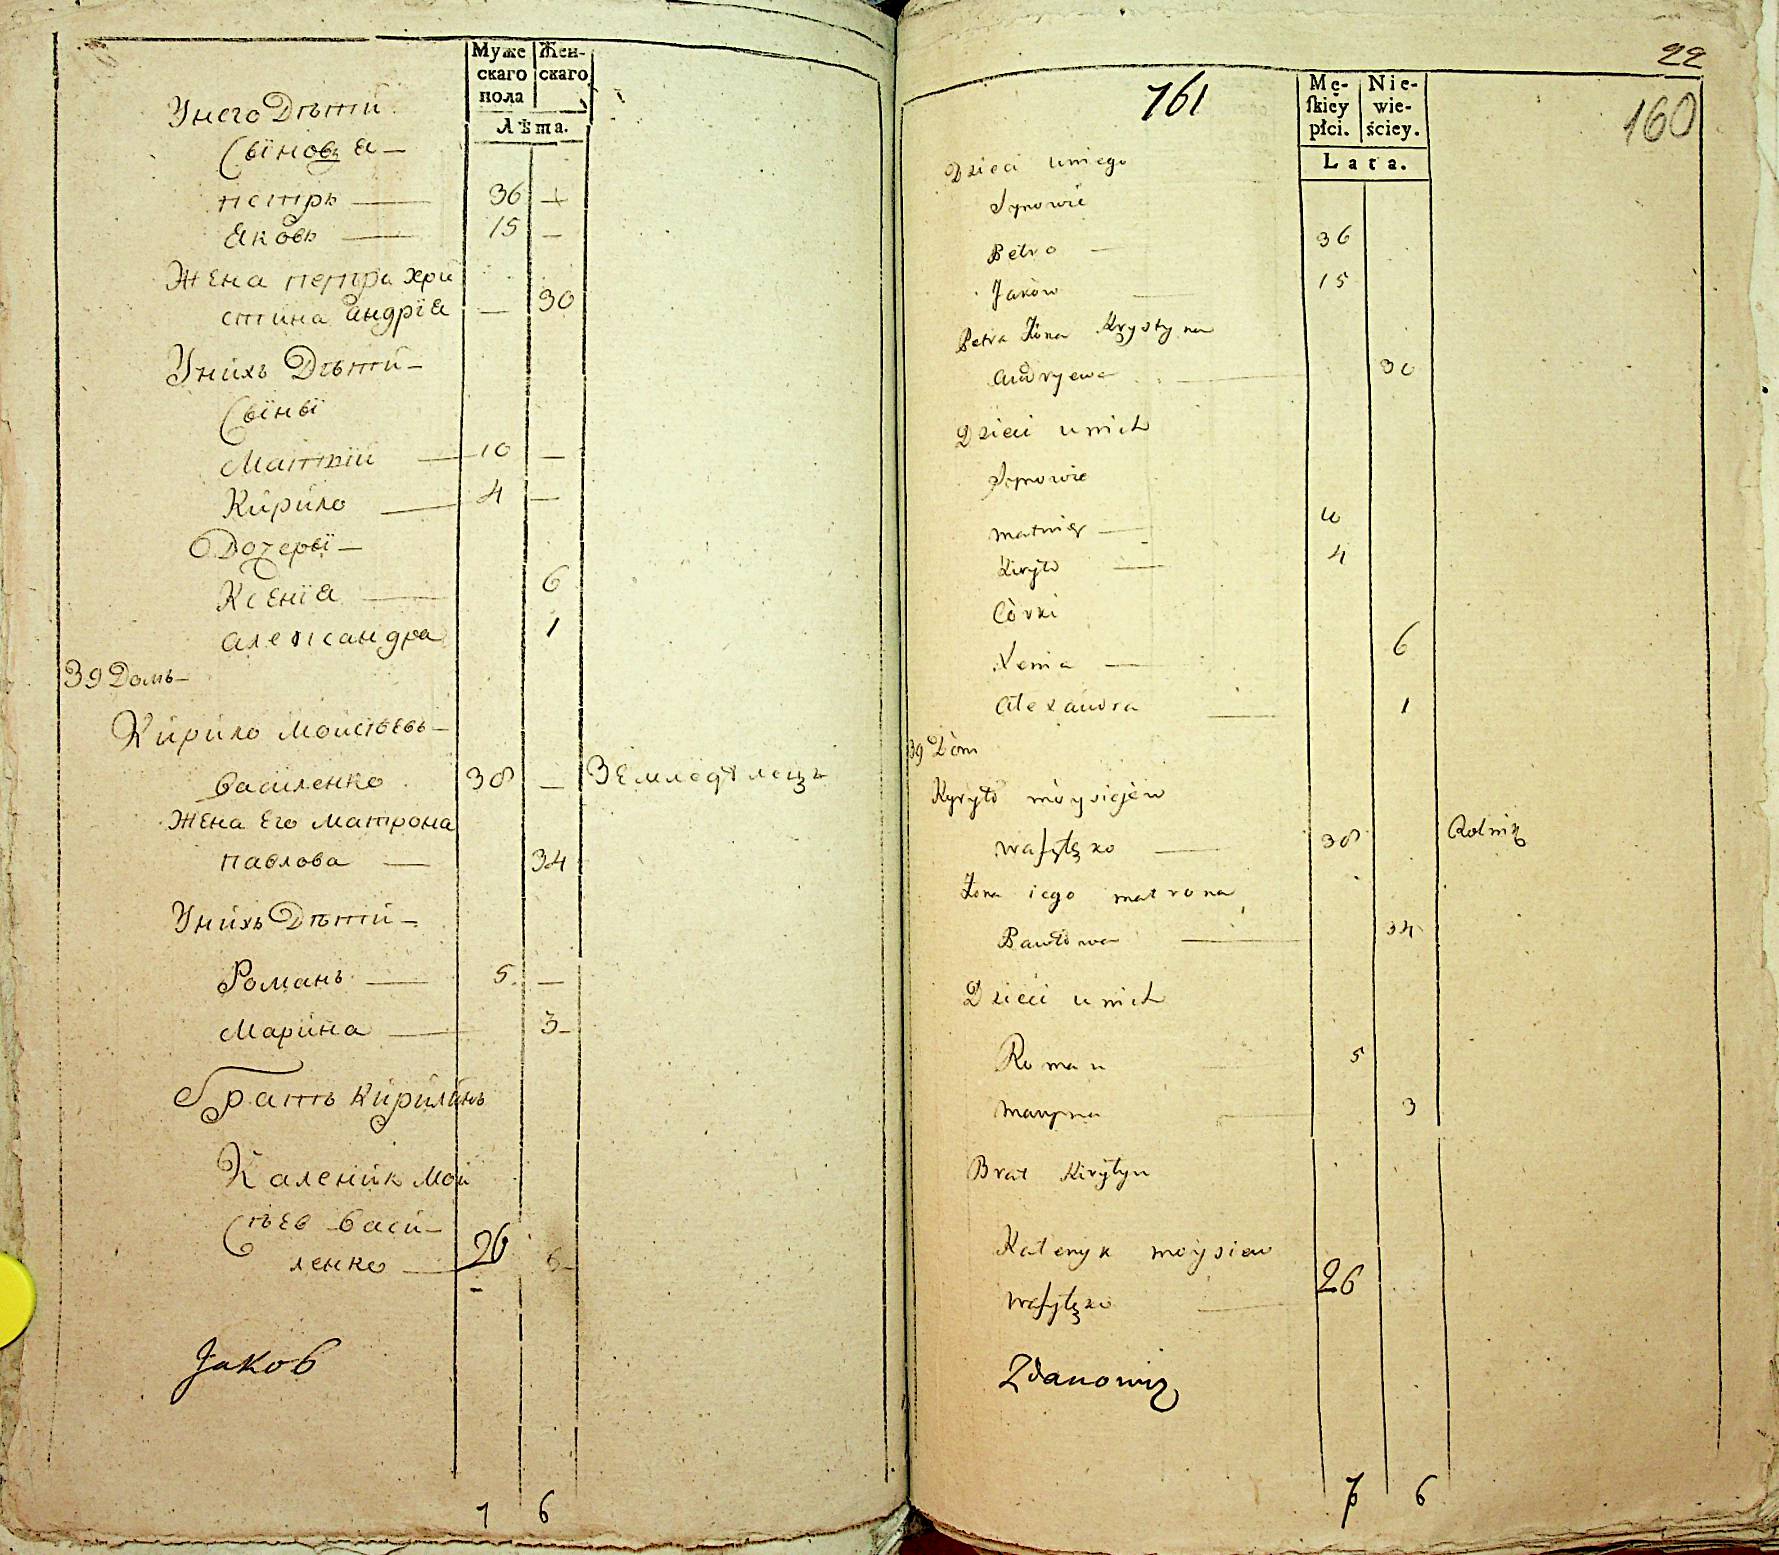 Муже
скаго
пола
Жен-
скаго
Лѣта.
Унего Дѣтти
Сыновя —
петръ — 36 —
Яковъ — 15 —
Жена петра хри
стина андрїя — 30
Унихъ Дѣтти —
Сыны
Матвїй — 10 —
Кирило — 4 —
Дочеры —
Ксенїя — 6
александра 1
39 Домъ —
Кирило Моисѣевъ —
василенко 38 — Земледѣлецъ
Жена Его матрона
павлова — 34
Унихъ Дѣтти —
Романъ — 5 —
Марина — 3 —
братъ Кирилинъ
Каленик Мои
сѣев васи —
ленко — 26
Jakob
7 6
22
160
161
Mę-
ſkiey
płci.
Nie-
wie-
ściey.
Lata.
Dzieci uniego
Synowie
Petro — 36
Jakow — 15
Petra Żona Krystyna
Andryewa — 30
Dzieci unich
Synowie
Matwiey —
Kiryło — 4
Córki
Xenia — 6
Alexandra — 1
39 Dom
Kyryło Moysiejew
Waſylęko — 38 Rolnik
Żona iego matrona
Pawłowa — 34
Dzieci unich
Roman 5
Maryna — 3
Brat Kiryłyn
Kalenyk moysiew
Waſylęko — 26
Zdanowicz
7 6